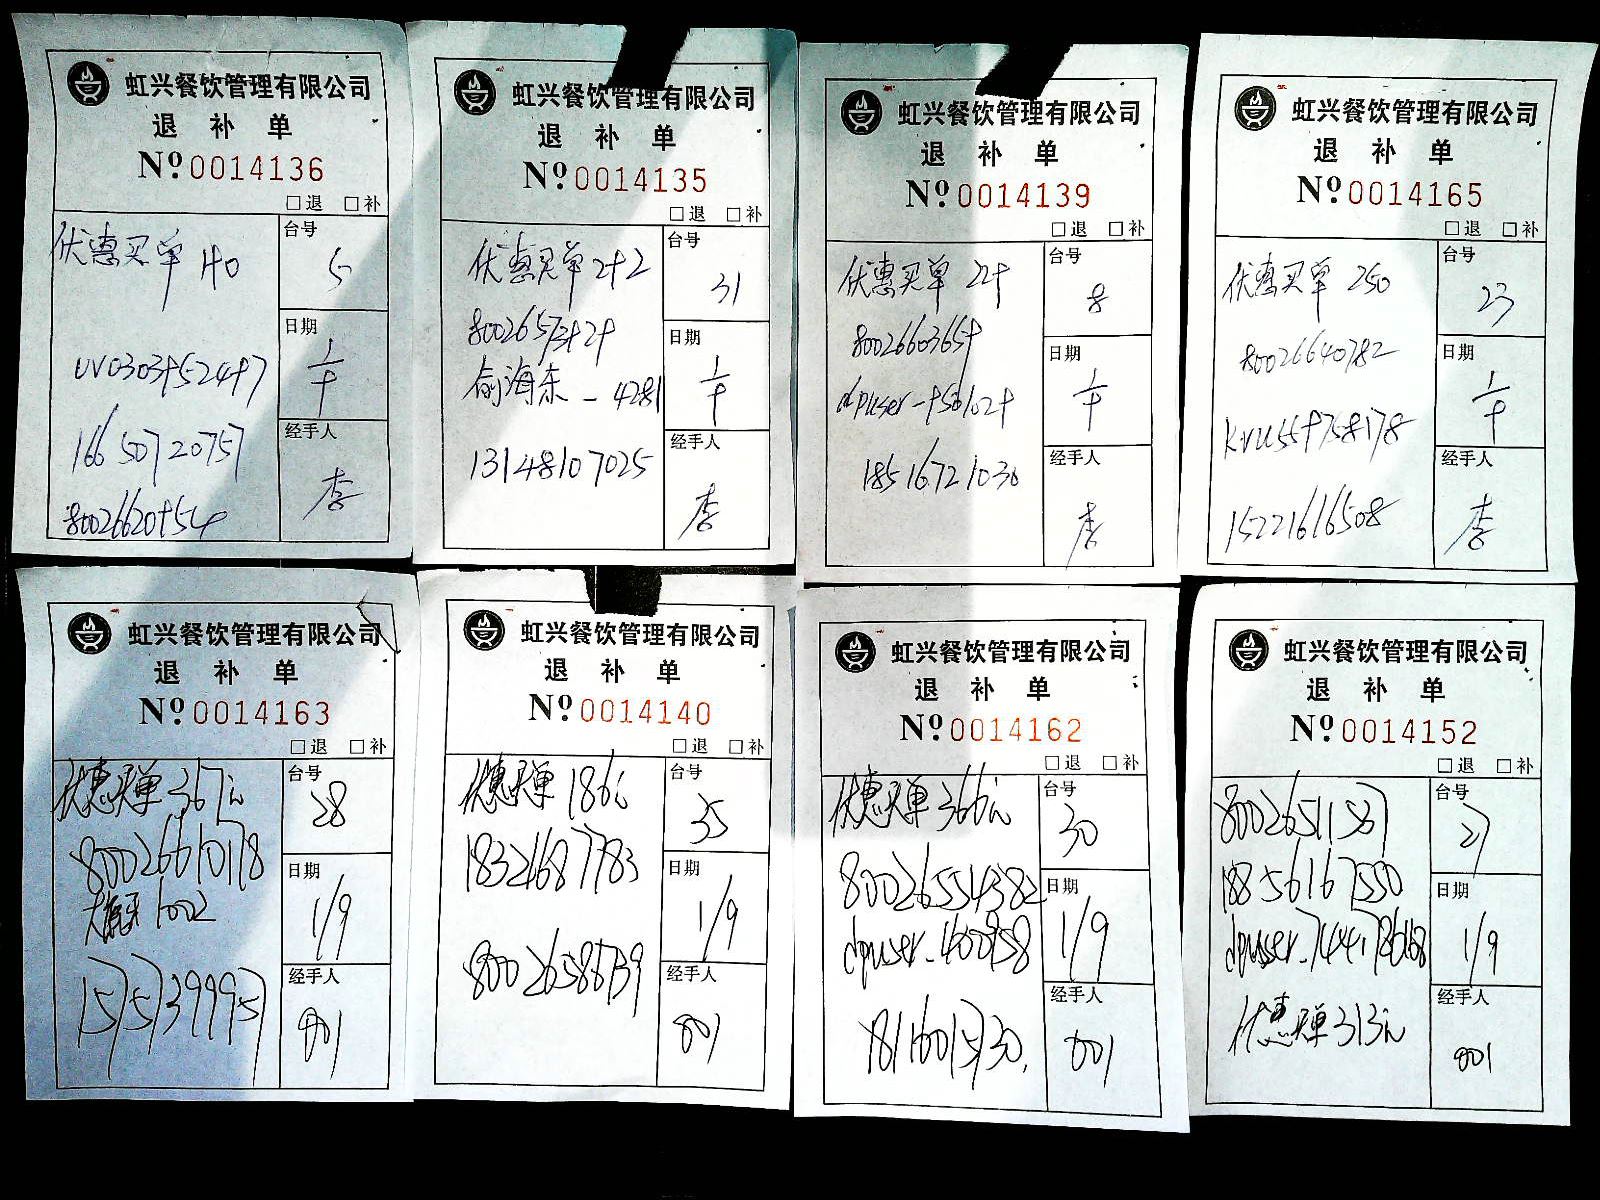 虹兴餐饮管理有限公司
退 补 单
Nº 0014136
□退 □补
优惠买单 140
台号
5
日期
经手人
李
16650720757
虹兴餐饮管理有限公司
退 补 单
Nº 0014135
□退 □补
优惠买单
台号
31
日期
俞海东
经手人
13148107025
李
虹兴餐饮管理有限公司
退 补 单
Nº 0014139
□退 □补
优惠买单
台号
8
日期
经手人
18516721030
李
虹兴餐饮管理有限公司
退 补 单
Nº 0014165
□退 □补
优惠买单 250
台号
23
80026640782
日期
经手人
15221616508
李
虹兴餐饮管理有限公司
退 补 单
Nº 0014163
□退 □补
优惠买单 367元
台号
28
80026610178
日期
1/9
经手人
15775399957
001
虹兴餐饮管理有限公司
退 补 单
Nº 0014140
□退 □补
优惠买单 186元
台号
35
18321687783
日期
1/9
80026588739
经手人
001
虹兴餐饮管理有限公司
退 补 单
Nº 0014162
□退 □补
优惠买单 366元
台号
30
80026554382
日期
1/9
经手人
001
虹兴餐饮管理有限公司
退 补 单
Nº 0014152
□退 □补
80026511587
台号
27
18856167550
日期
1/9
经手人
优惠买单 313元
001